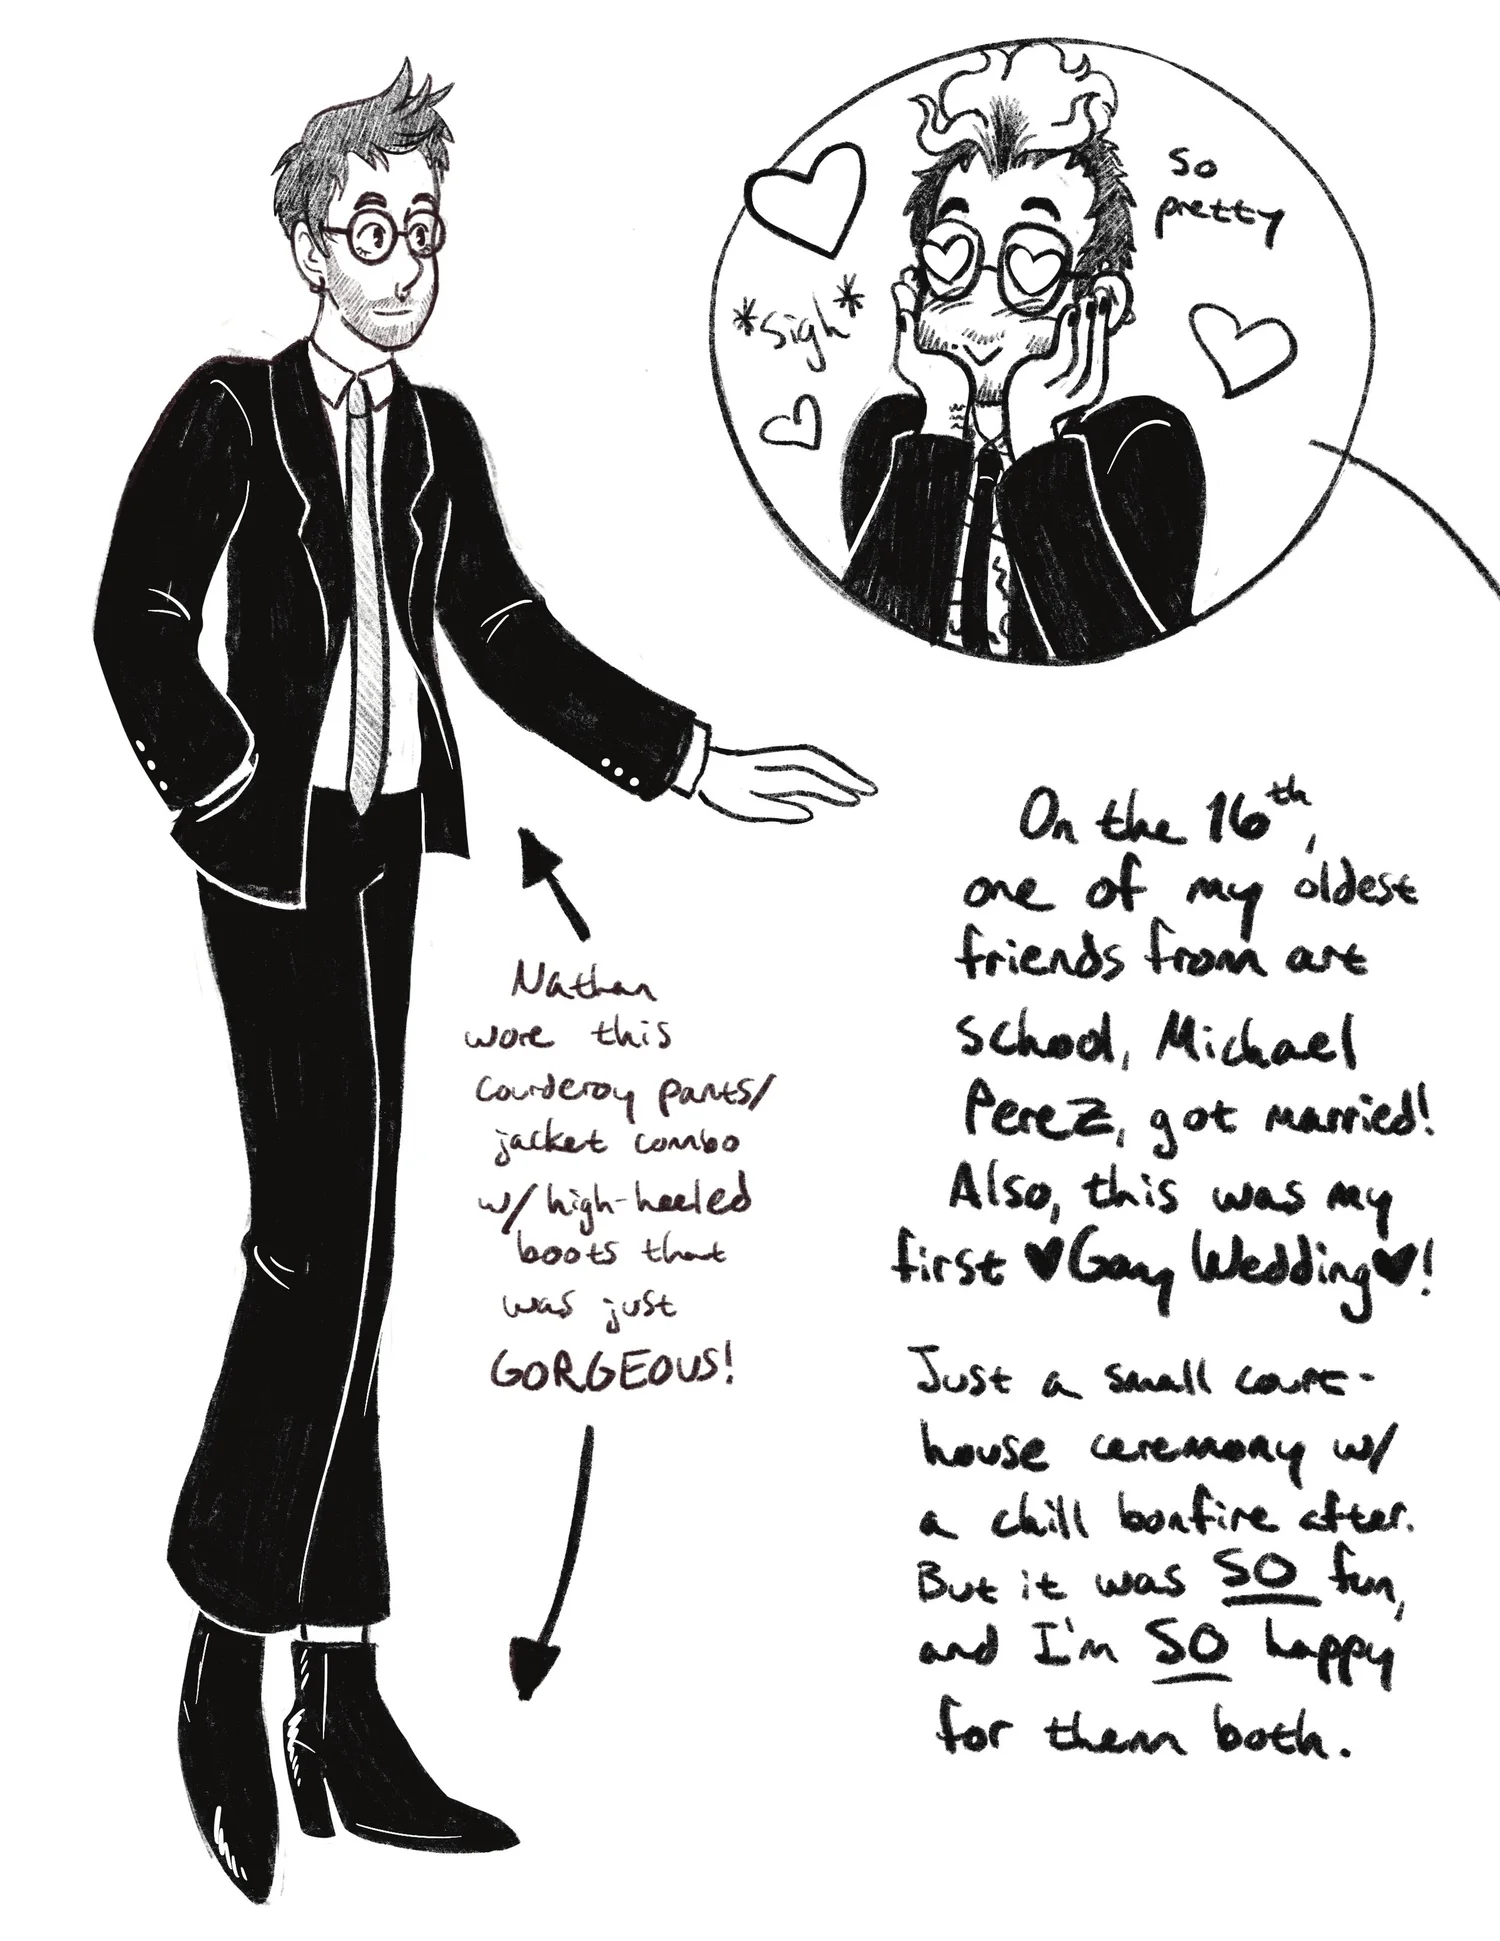 so
pretty
*sigh*
On the 16th,
one of my oldest
friends from art
school, Michael
Perez, got married!
Also, this was my
first ♥Gay Wedding♥!
Just a small court-
house ceremony w/
a chill bonfire after.
But it was SO fun,
and I'm SO happy
for them both.
Nathan
wore this
courderoy pants/
jacket combo
w/ high-heeled
boots that
was just
GORGEOUS!